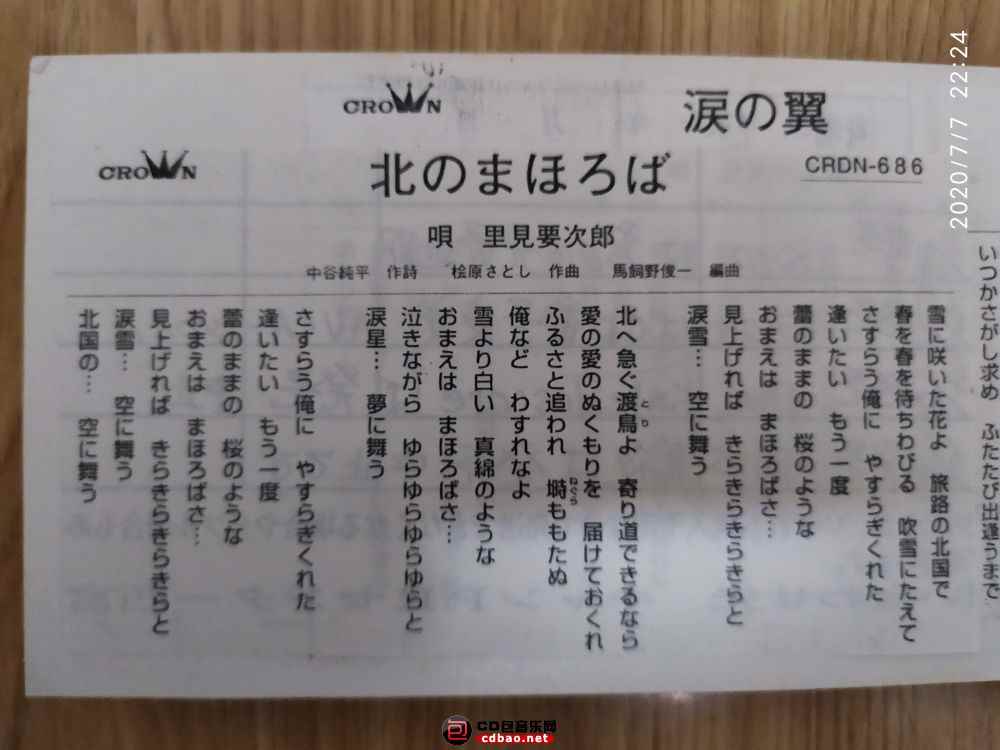 2020/7/7 22:24
CROWN
涙の翼
CROWN
北のまほろば
CRDN-686
唄 里見要次郎
中谷純平 作詩 桧原さとし 作曲 馬飼野俊一 編曲
いつかさがし求め ふたたび出逢うまで
雪に咲いた花よ 旅路の北国で
春を春を待ちわびる 吹雪にたえて
さすらう俺に やすらぎくれた
逢いたい もう一度
蕾のままの 桜のような
おまえは まほろばさ…
見上げれば きらきらきらきらと
涙雪… 空に舞う
北へ急ぐ渡鳥よ 寄り道できるなら
とり
愛の愛のぬくもりを 届けておくれ
ふるさと追われ 塒ももたぬ
ねぐら
俺など わすれなよ
雪より白い 真綿のような
おまえは まほろばさ…
泣きながら ゆらゆらゆらゆらと
涙星… 夢に舞う
さすらう俺に やすらぎくれた
逢いたい もう一度
蕾のままの 桜のような
おまえは まほろばさ…
見上げれば きらきらきらきらと
涙雪… 空に舞う
北国の… 空に舞う
CD包音乐网
cdbao.net